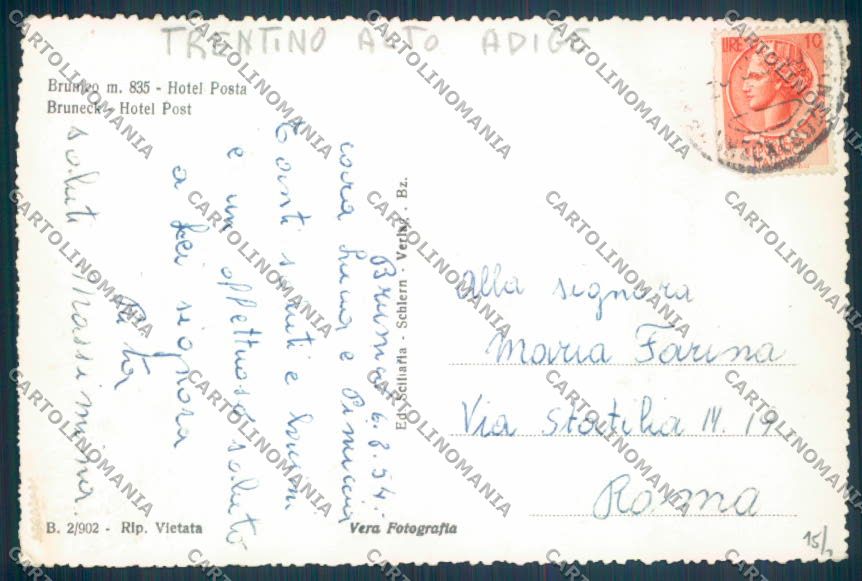 TRENTINO ALTO ADIGE
LIRE 10
Brunico m. 835 - Hotel Posta
Bruneck - Hotel Post
Brunico 6.8.54.
cara Luisa e
Tanti saluti e
e un affettuoso saluto
a Lei signora
saluti Massimina.
Ed. Sciliaria - Schlern - Verlag . Bz.
Alla signora
Maria Farina
Via Statilia N. 19
Roma
B. 2/902 - Rip. Vietata
Vera Fotografia
15/
CARTOLINOMANIA